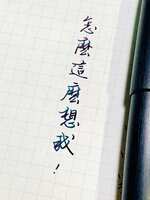 怎麼這麼想我！